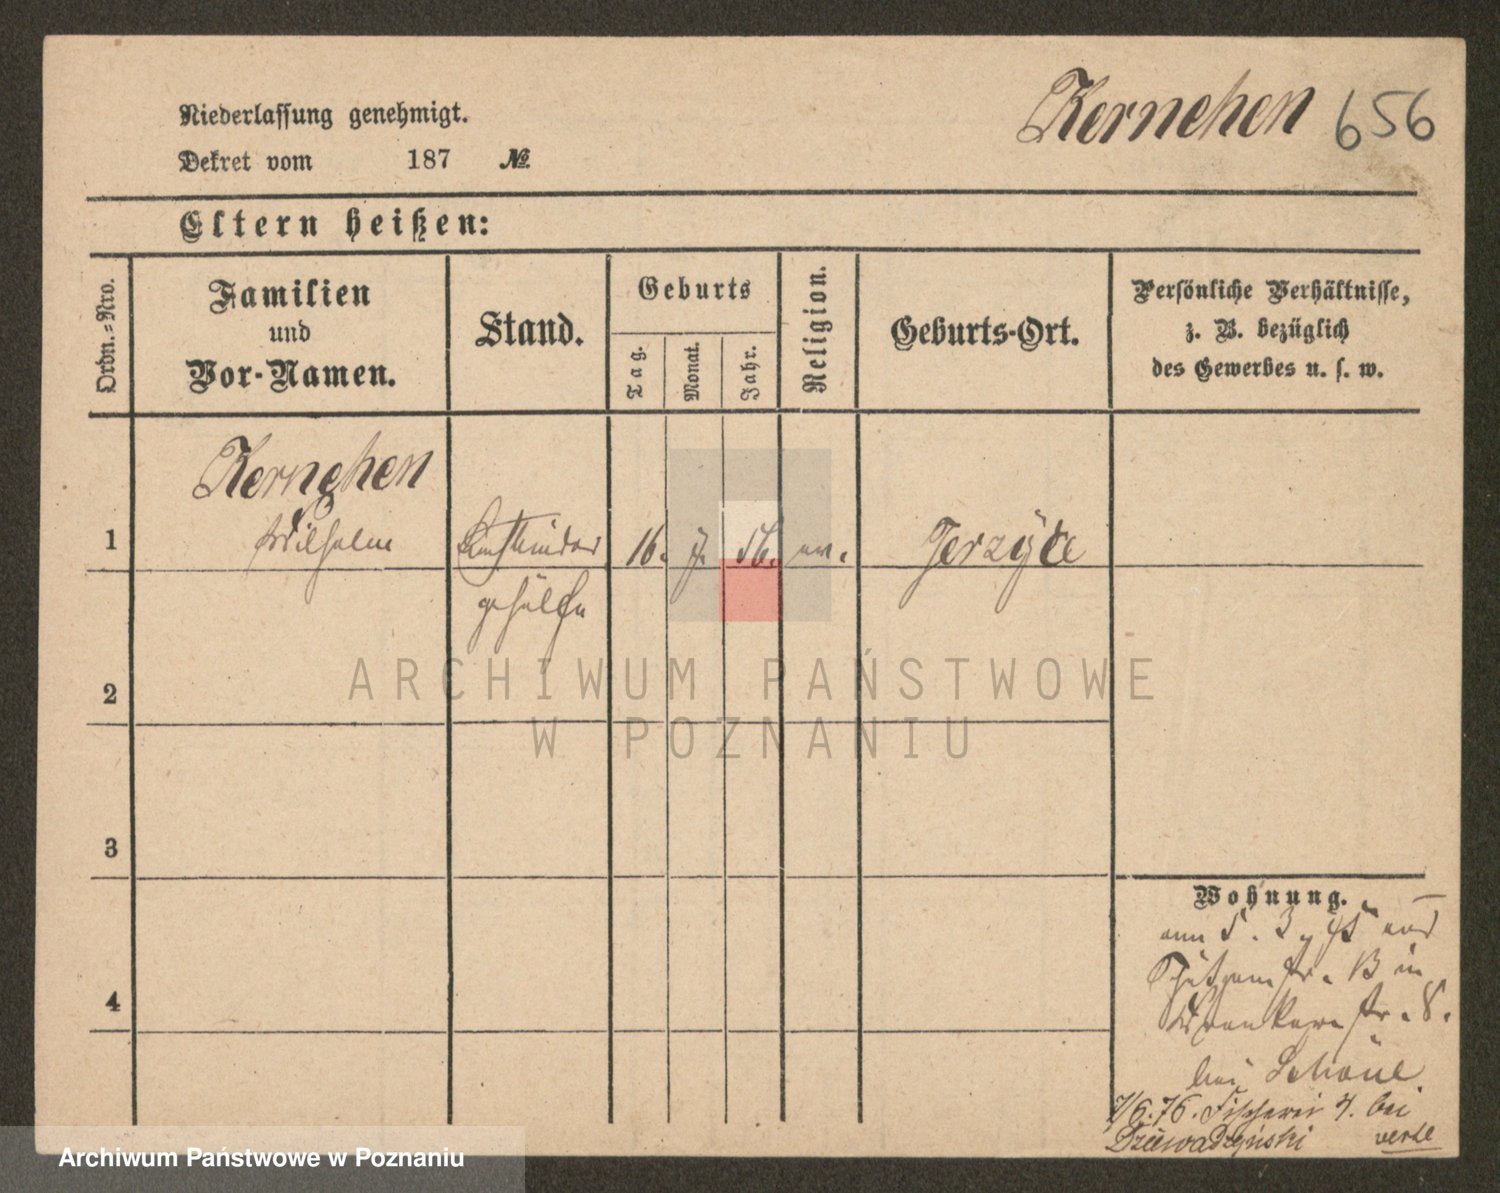 Kernchen 656
Niederlassung genehmigt.
Dekret vom 187 №
Eltern heißen:
Ordn.=Nro.
Familien
und
Vor-Namen.
Stand.
Geburts
Tag.
Monat.
Jahr.
Religion.
Geburts-Ort.
Persönliche Verhältnisse,
z. B. bezüglich
des Gewerbes u. s. w.
Kernchen
1 Wilhelm 16. 7. 56. ev. Jerzyce
gehülfe
2
3
4
Wohnung.
am 5. 3. 75 aus
Schützenstr. 13 in
Wronkerstr. 8.
bei
7/6.76. Fischerei 7. bei
verte
ARCHIWUM PAŃSTWOWE
W POZNANIU
Archiwum Państwowe w Poznaniu